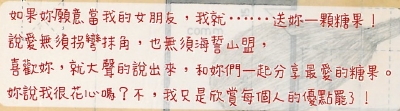 如果妳願意當我的女朋友，我就……送妳一顆糖果！
說愛無須拐彎抹角，也無須海誓山盟，
喜歡妳，就大聲的說出來，和妳們一起分享最愛的糖果。
妳說我很花心嗎？不，我只是欣賞每個人的優點罷了！